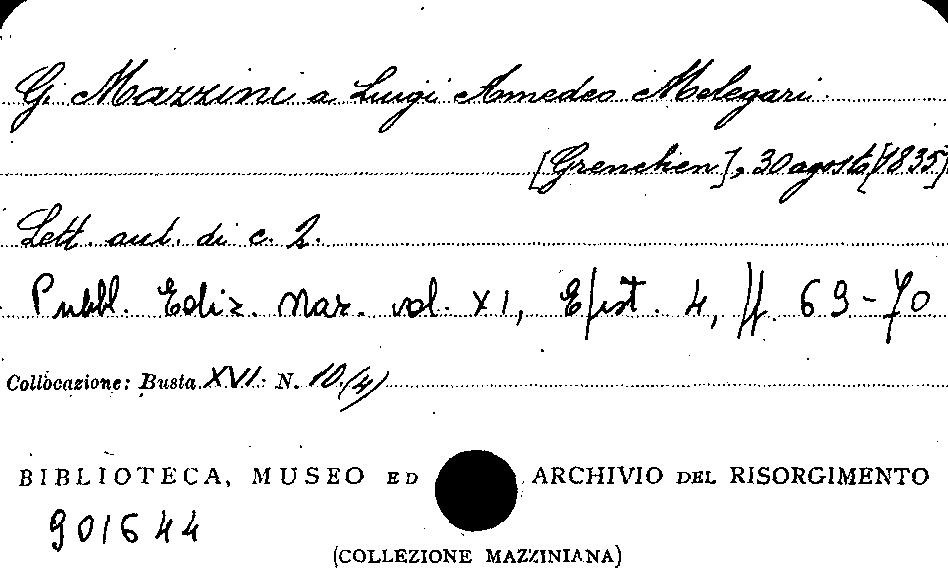 G. Mazzini a Luigi Amedeo Melegari.
[Grenchen], 30 agosto [1835]
Lett. aut. di c. 2.
Pubbl. Ediz. Naz. vol. XI, Epist. 4, pp. 69-70
Collocazione: Busta XVI. N. 10.(4)
BIBLIOTECA, MUSEO ED ARCHIVIO DEL RISORGIMENTO
901644
(COLLEZIONE MAZZINIANA)